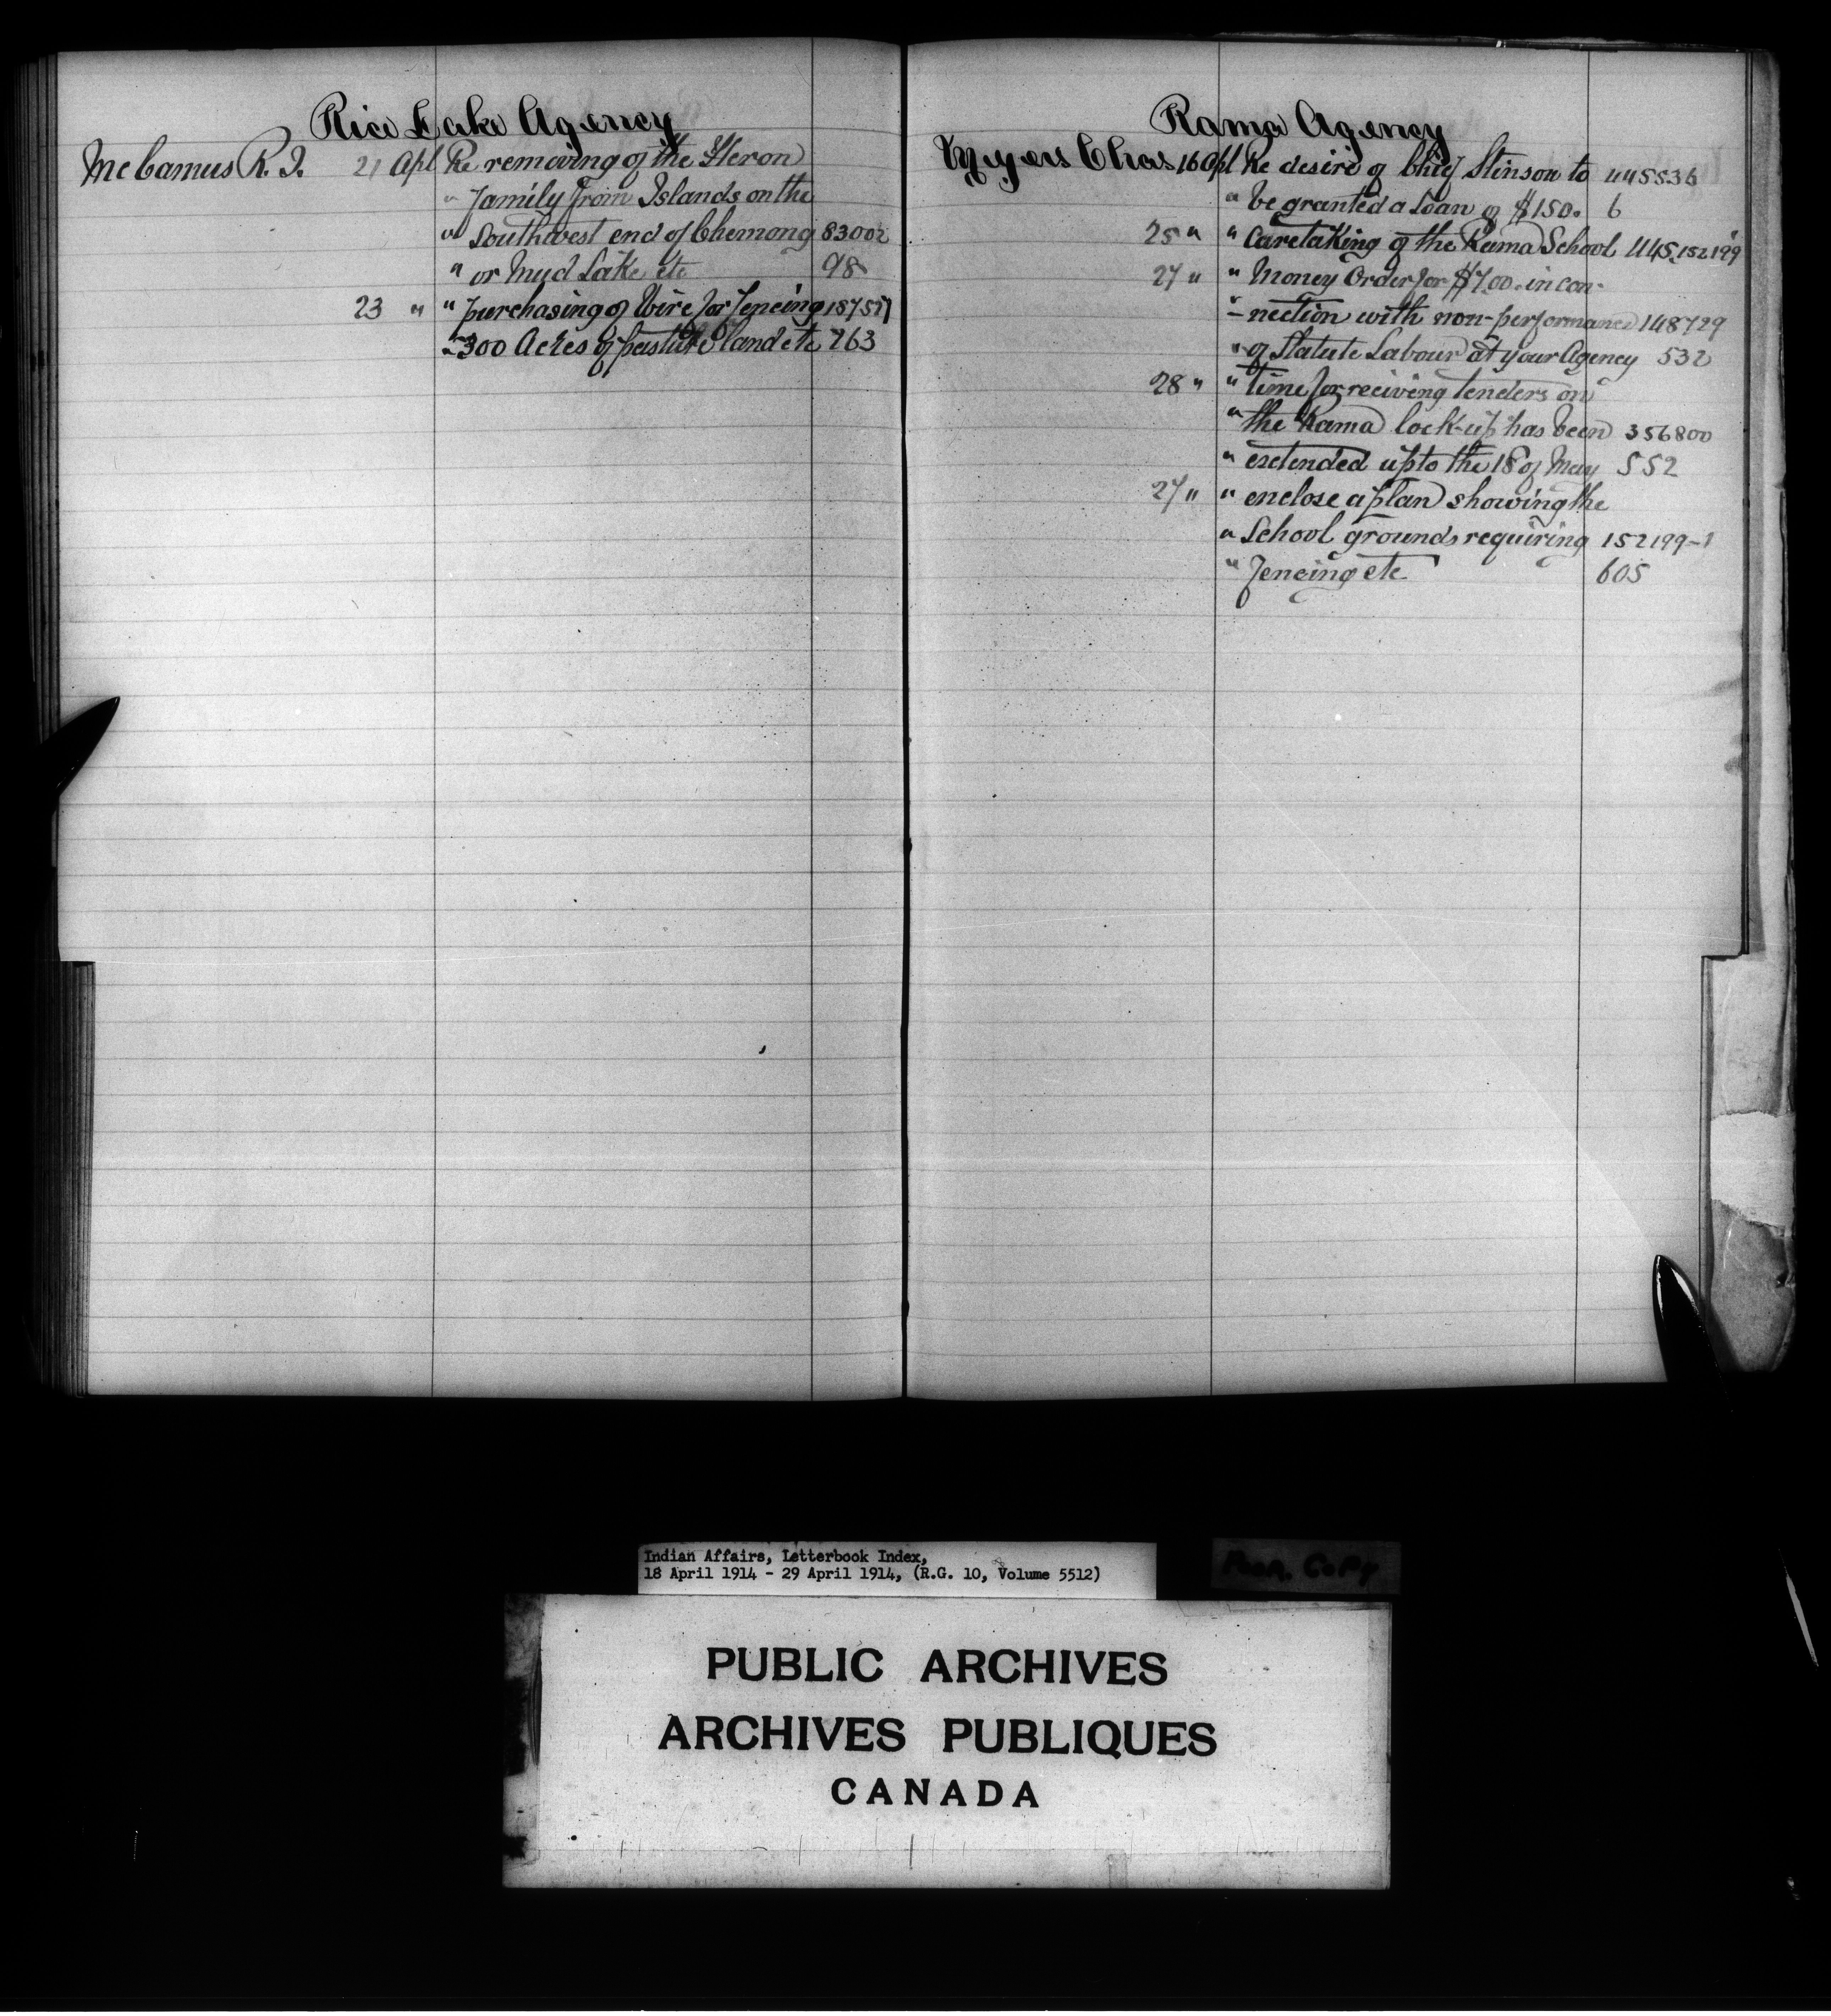 Rice Lake Agency
McCamus R. J. 21 Apl Re removing of the Heron
" family from Islands on the
" Southwest end of Chemong 83002
" or Mud Lake etc 98
23 " " purchasing of Wire for fencing 187527
" 300 Acres of pasture land etc 263
Rama Agency
Myers Chas 16 Apl Re desire of Chief Stinson to 445536
" be granted a Loan of $150. 6
25 " " Caretaking of the Rama School 445, 152199
27 " " Money Order for $7.00. in con-
" nection with non-performance 148729
" of Statute Labour at your Agency 532
28 " " time for reciving tenders on
" the Rama lock-up has been 356800
" extended up to the 18 of May 552
27 " " enclose a plan showing the
" School grounds requiring 152199-1
" fencing etc 605
Indian Affairs, Letterbook Index,
18 April 1914 - 29 April 1914, (R.G. 10, Volume 5512)
Poor Copy
PUBLIC ARCHIVES
ARCHIVES PUBLIQUES
CANADA